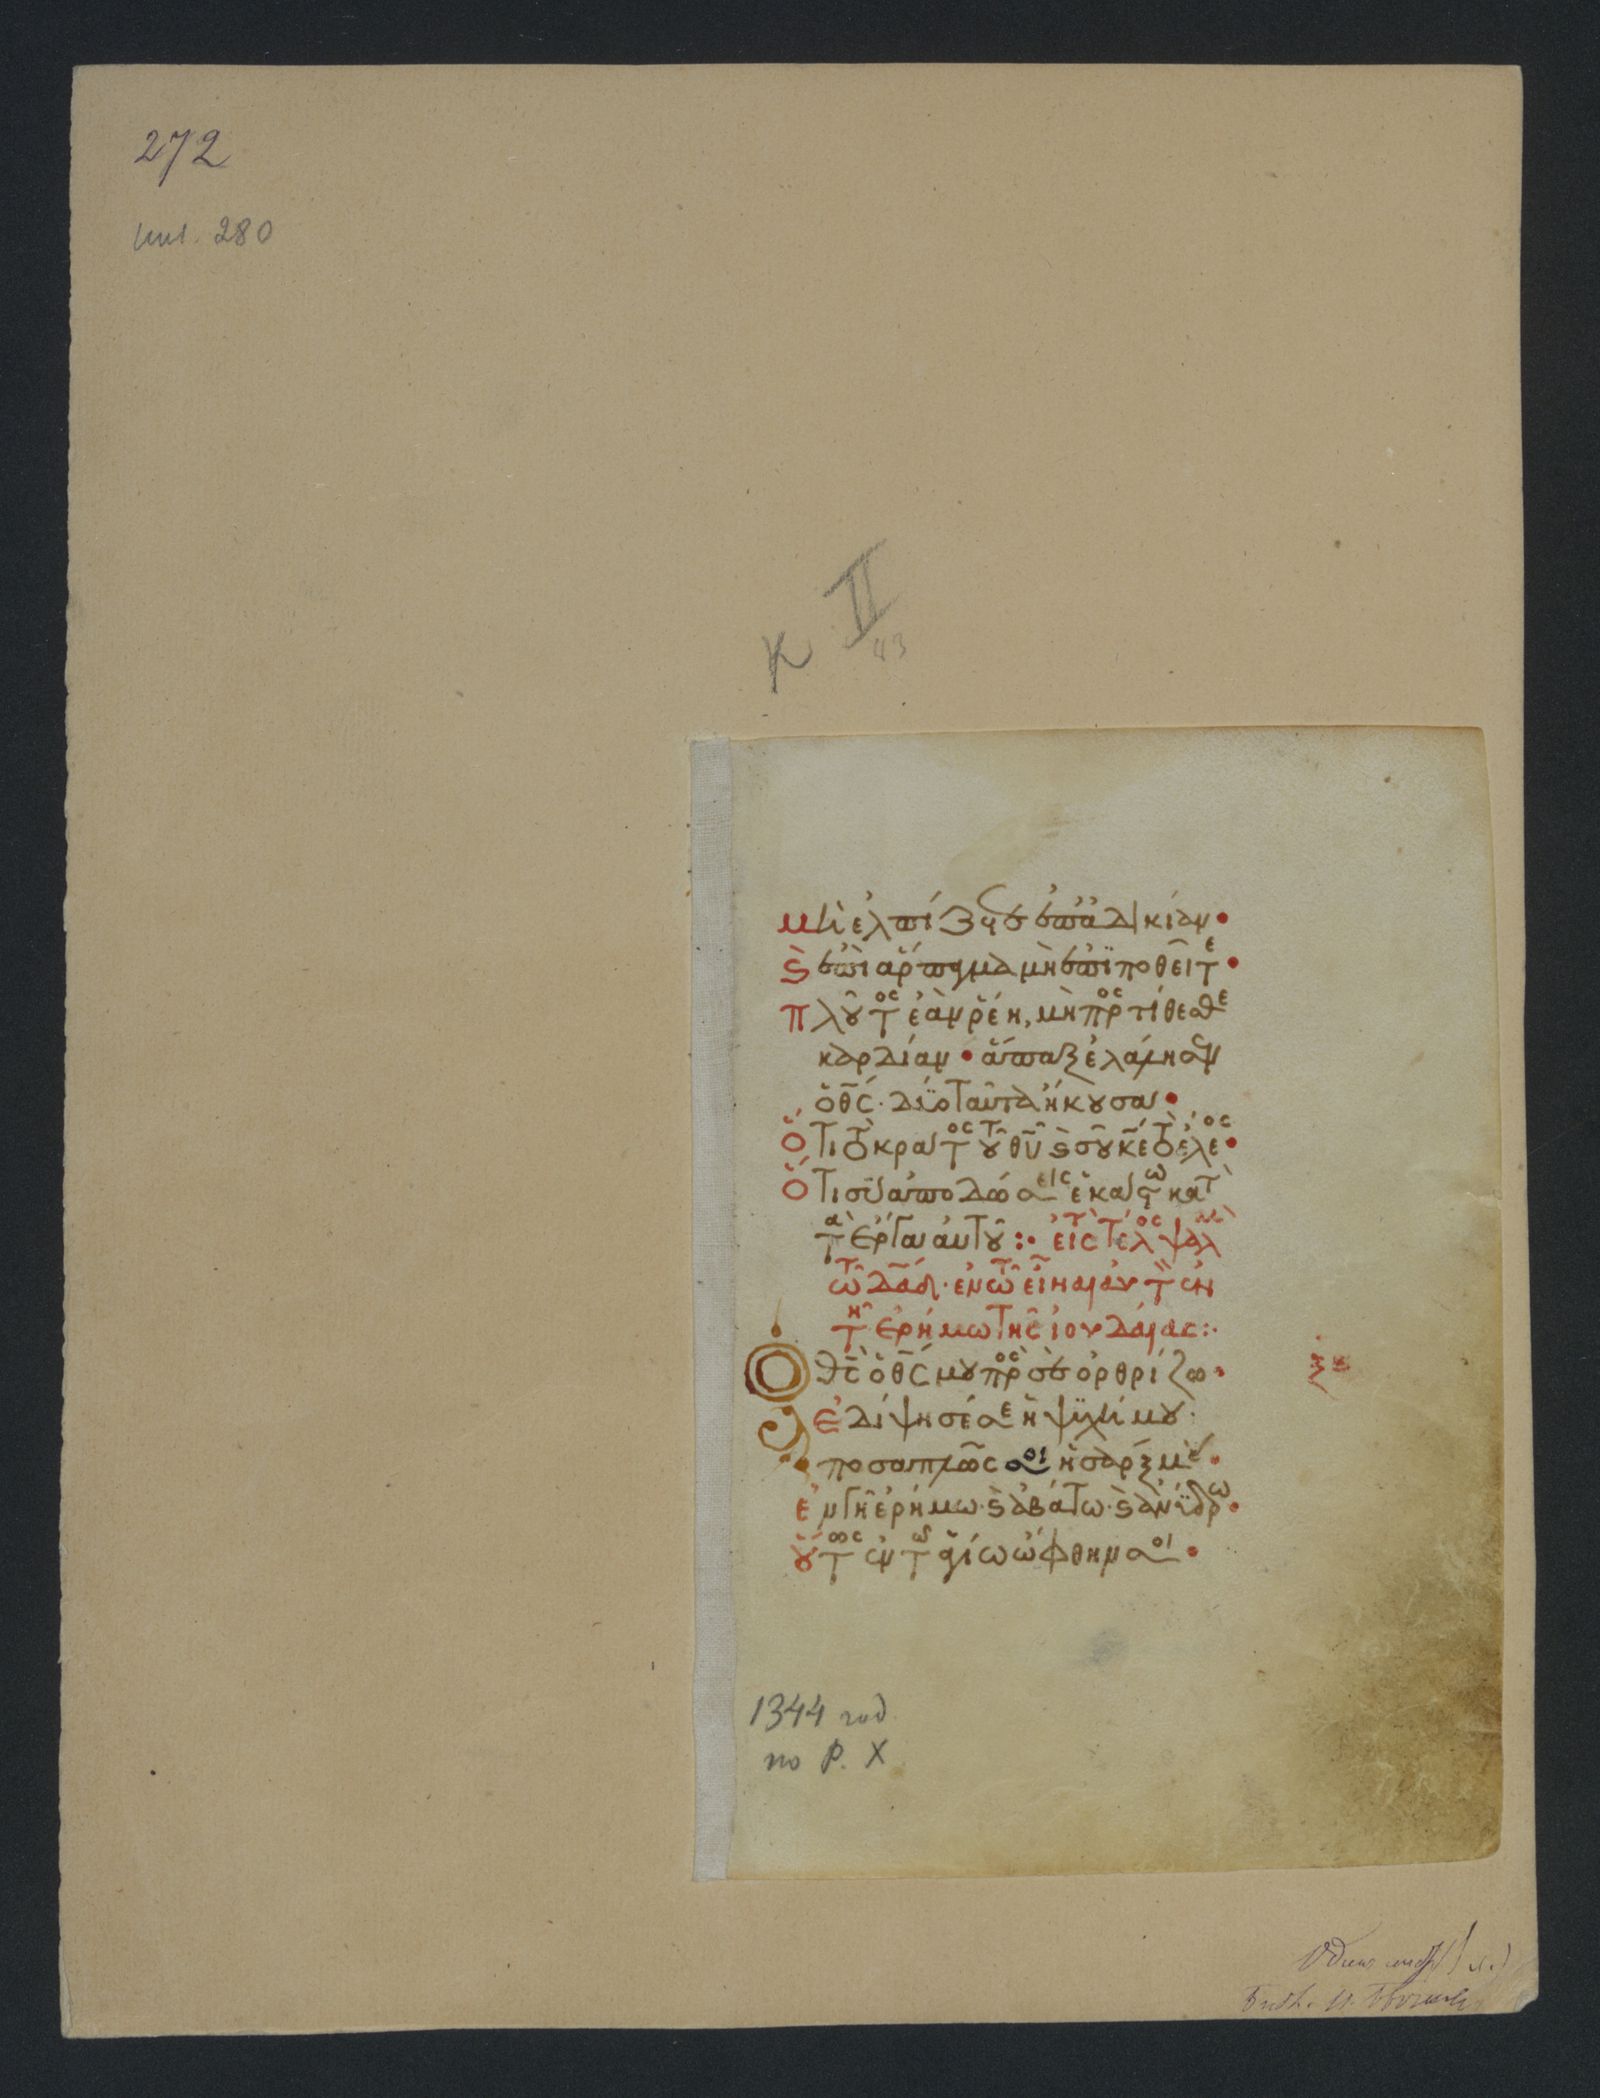 272
инв. 280
К II
43
μὴ ἐλπίζετε ἐπ' ἀδικίαν •
ϛ ἐπὶ ἅρπαγμα μὴ ἐπιποθεῖτε •
πλȣ͂τος ἐὰν ῥέη, μὴ προστίθεσθε
καρδίαν • ἅπαξ ἐλάλησεν
ὁ θς · δύο ταῦτα ἤκȣσα •
ὅτι τὸ κράτος τȣ͂ θυ ϛ σȣ͂ κε τὸ ἔλεος •
ὅτι σὺ ἀποδώσεις ἑκάστω κατὰ
τὰ ἔργα αὐτȣ͂ :· εἰς τὸ τέλος ψαλμὸς
τῶ δαδ · ἐν τῶ εἶναι αὐτὸν ἐν
τῆ ἐρήμω τῆς ἰουδαίας :·
Ο θς ὁ θς μȣ πρὸς σὲ ὀρθρίζω •
ἐδίψησέ σε ἡ ψυχή μȣ ·
ποσαπλῶς σοι ἡ σάρξ μȣ •
ἐν γῆ ἐρήμω · ϛ ἀβάτω · ϛ ἀνύδρω •
ȣ̔́τως ἐν τῶ ἁγίω ὤφθην σοι •
1344 год
по Р. Х